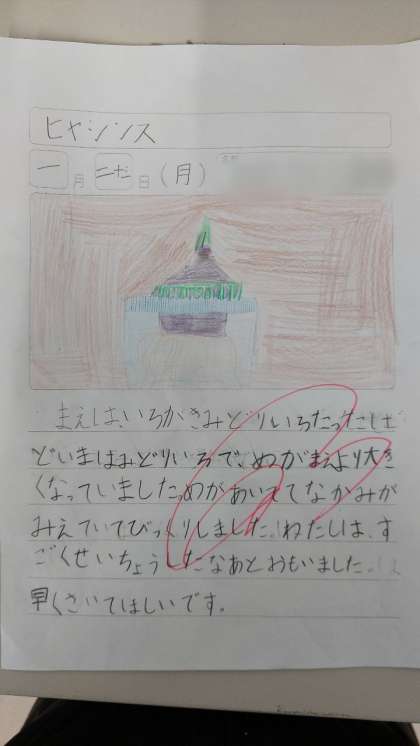 ヒヤシンス
一月二十七日(月)
まえは、いろがきみどりいろだったけれ
どいまはみどりいろで、めがまえより大き
くなっていました。めがあいててなかみが
みえていてびっくりしました。わたしは、す
ごくせいちょうしたなあとおもいました。
早くさいてほしいです。